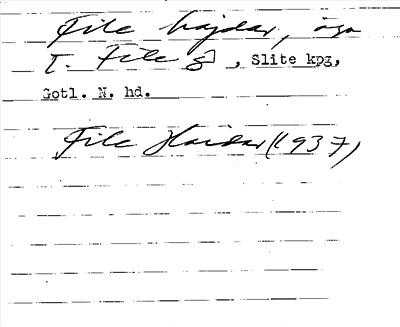 File hajdar, äga
t. File g , Slite kpg,
Gotl. N. hd.
File Haidar (1937)